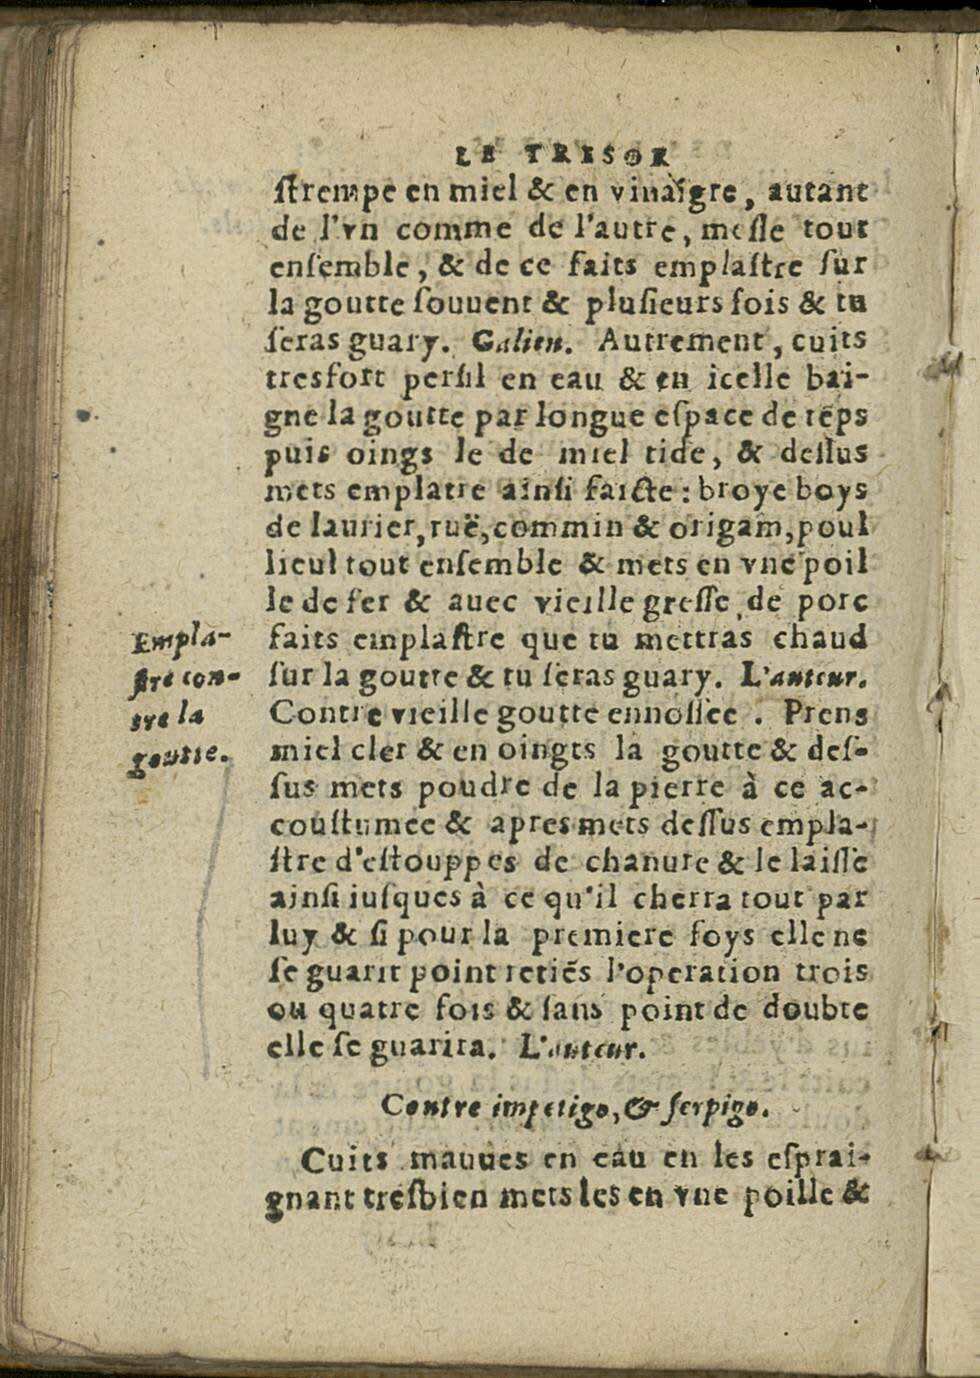 LE TRESOR
ſtrempe en miel & en vinaigre, autant
de l'vn comme de l'autre, meſle tout
enſemble, & de ce faits emplaſtre ſur
la goutte ſouuent & pluſieurs fois & tu
ſeras guary. Galien. Autrement, cuits
tresfort perſil en eau & en icelle bai-
gne la goutte par longue eſpace de tēps
puis oings le de miel tide, & deſſus
mets emplatre ainſi faicte: broye boys
de laurier, ruë, commin & origam, poul
lieul tout enſemble & mets en vne poil
le de fer & auec vieille greſſe de porc
faits emplaſtre que tu mettras chaud
ſur la goutte & tu ſeras guary. L'auteur.
Empla-
ſtre con-
tre la
goutte.
Contre vieille goutte ennoſſee. Prens
miel cler & en oingts la goutte & deſ-
ſus mets poudre de la pierre à ce ac-
couſtumee & apres mets deſſus empla-
ſtre d'eſtouppes de chanure & le laiſſe
ainſi iuſques à ce qu'il cherra tout par
luy & ſi pour la premiere foys elle ne
ſe guarit point retiēs l'operation trois
ou quatre fois & ſans point de doubte
elle ſe guarira. L'auteur.
Contre impetigo, & ſerpigo.
Cuits mauues en eau en les eſprai-
gnant treſbien mets les en vne poille &